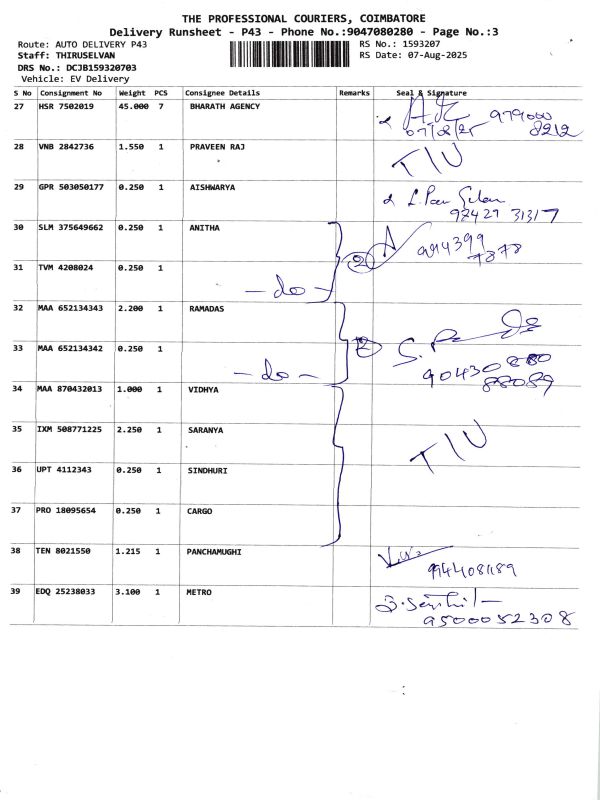 THE PROFESSIONAL COURIERS, COIMBATORE
Delivery Runsheet - P43 - Phone No.:9047080280 - Page No.:3
Route: AUTO DELIVERY P43 RS No.: 1593207
Staff: THIRUSELVAN RS Date: 07-Aug-2025
DRS No.: DCJB159320703
Vehicle: EV Delivery
S No Consignment No Weight PCS Consignee Details Remarks Seal & Signature
27 HSR 7502019 45.000 7 BHARATH AGENCY 979000
07/08/25 8212
28 VNB 2842736 1.550 1 PRAVEEN RAJ T/U
29 GPR 503050177 0.250 1 AISHWARYA
98427 31317
30 SLM 375649662 0.250 1 ANITHA 994399
2 7878
31 TVM 4208024 0.250 1
- do -
32 MAA 652134343 2.200 1 RAMADAS
33 MAA 652134342 0.250 1 2 S.
- do - 90430
88089
34 MAA 870432013 1.000 1 VIDHYA
35 IXM 508771225 2.250 1 SARANYA T/U
36 UPT 4112343 0.250 1 SINDHURI
37 PRO 18095654 0.250 1 CARGO
38 TEN 8021550 1.215 1 PANCHAMUGHI
39 EDQ 25238033 3.100 1 METRO
9500052308